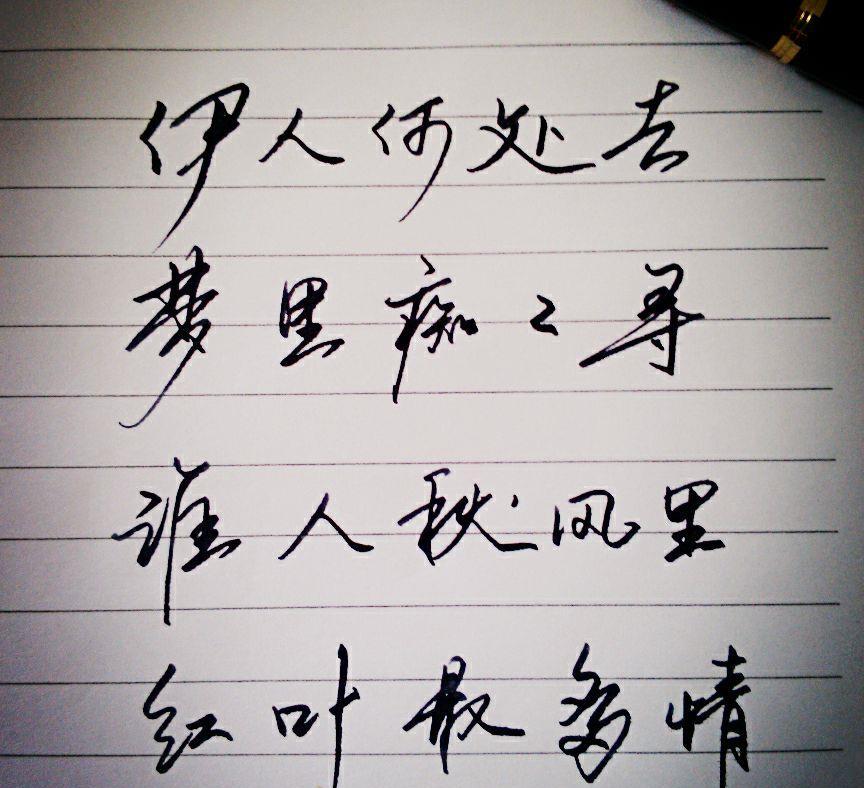 伊人何处去
梦里痴々寻
谁人秋风里
红叶最多情